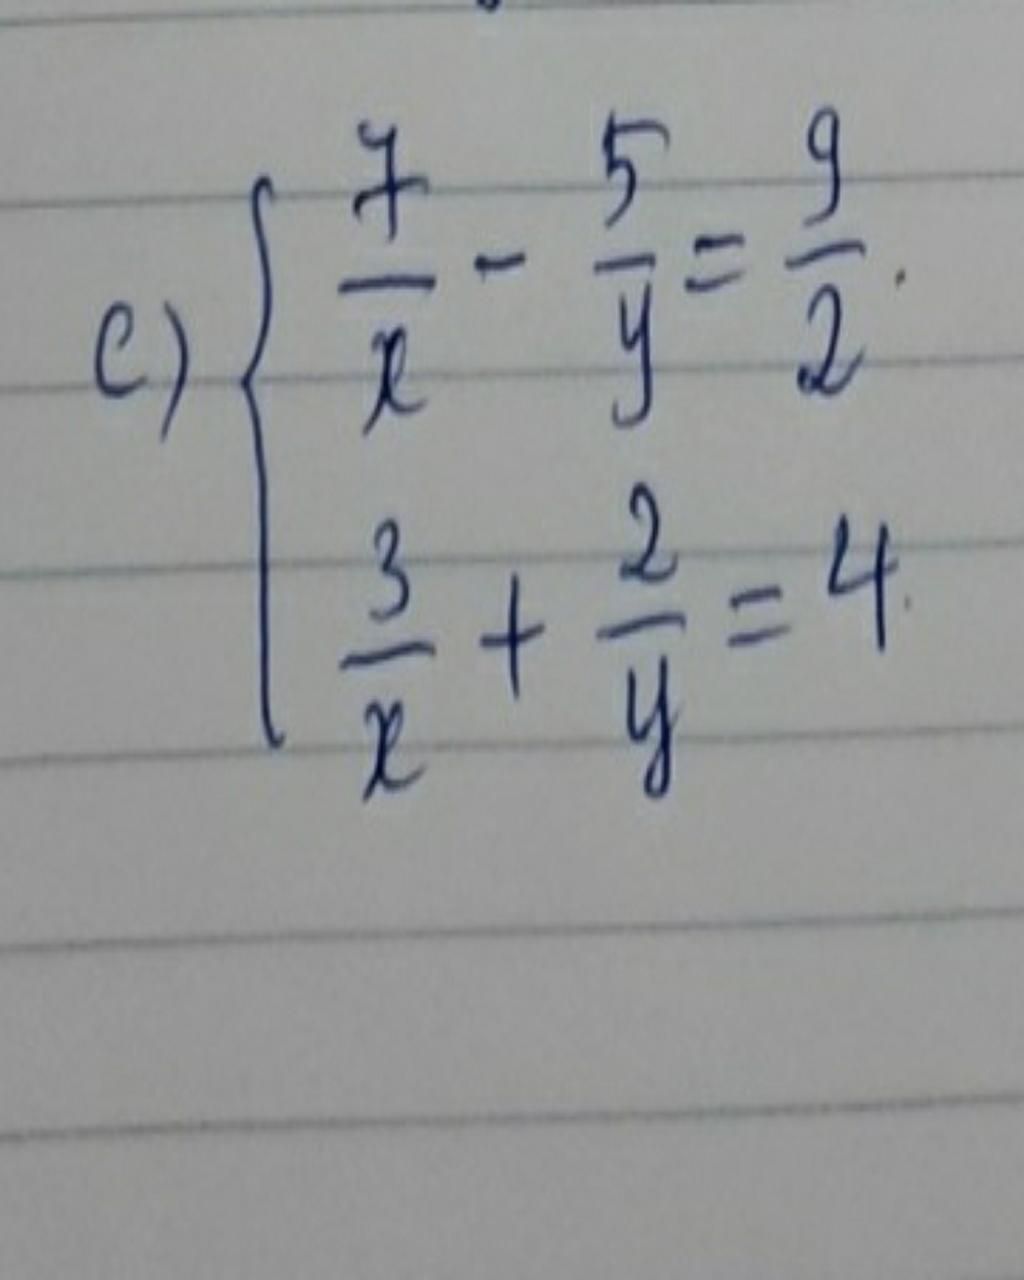 e) { 7/x - 5/y = 9/2.
3/x + 2/y = 4.